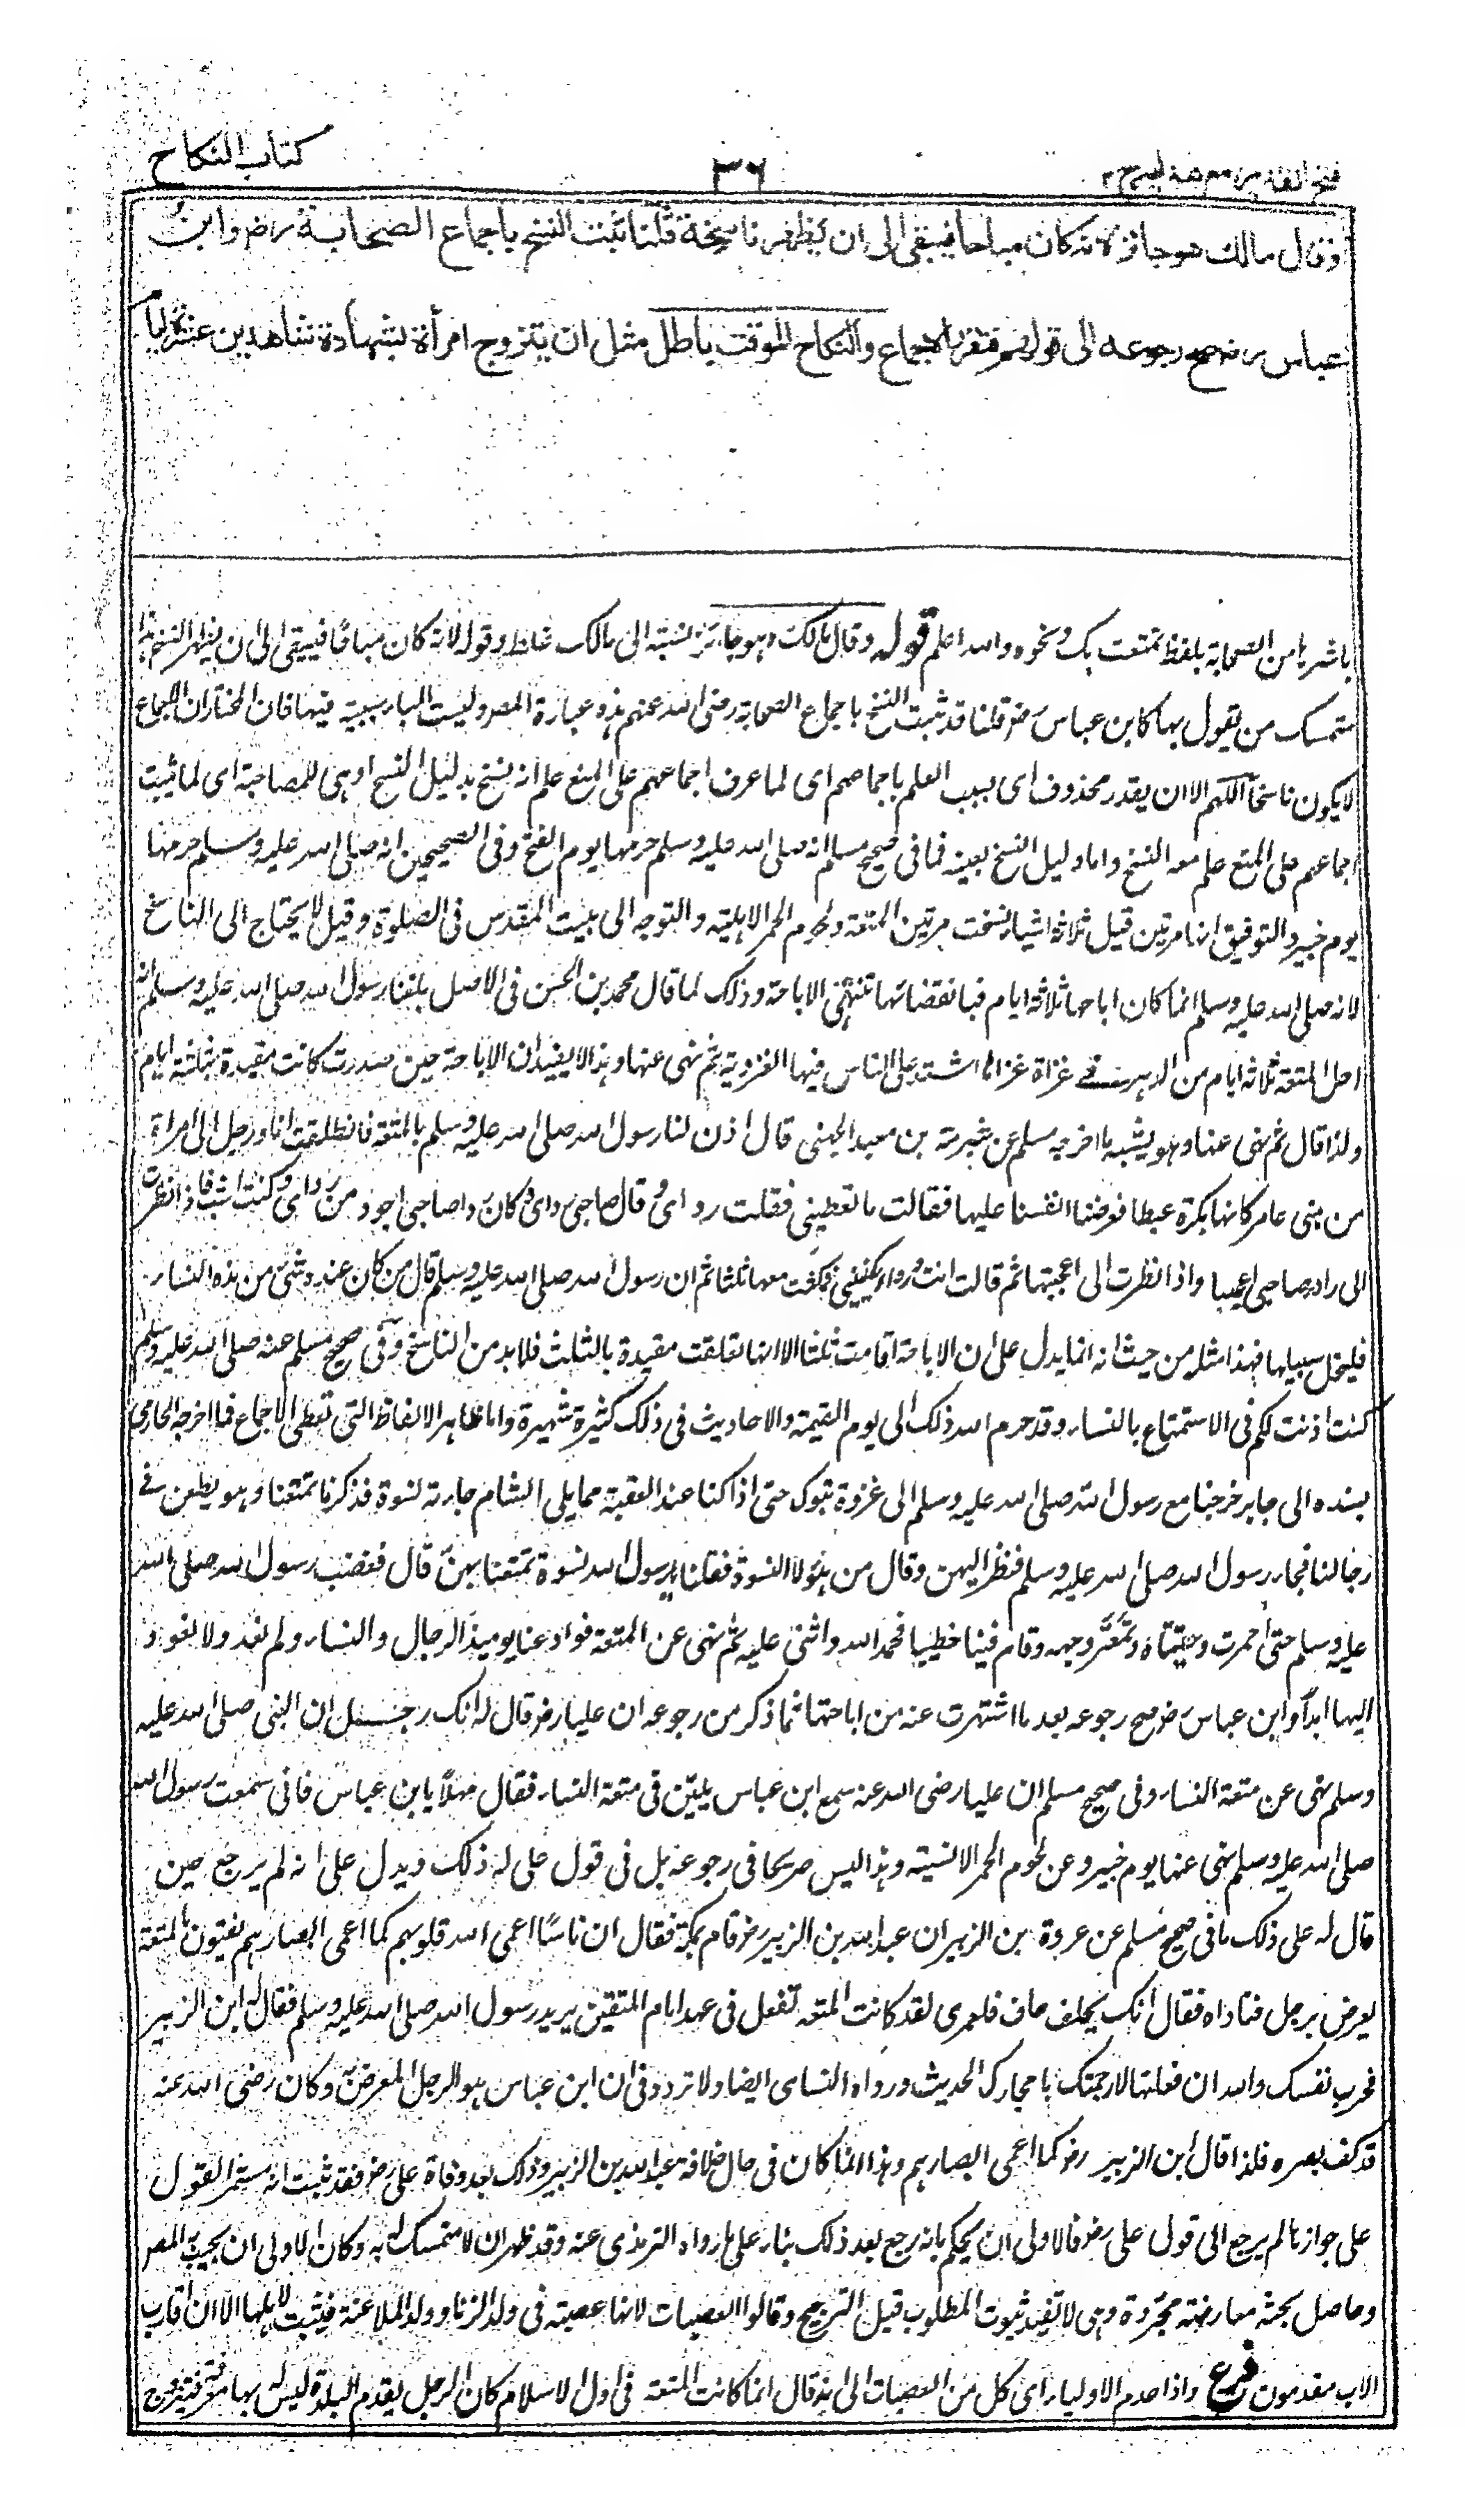 فتح القدير مع هداية ج ٢
٣٦
كتاب النكاح
وقال مالك هو جائز لانه كان مباحا فيبقى الى ان يظهر ناسخة قلنا ثبت النسخ باجماع الصحابة رض وابن
عباس رض صح رجوعه الى قولهم فتقرر الاجماع والنكاح الموقت باطل مثل ان يتزوج امرأة بشهادة شاهدين عشرة ايام
باشرها من الصحابة بلفظ تمتعت بك ونحوه والله اعلم قوله وقال مالك وهو جائز نسبته الى مالك غلط وقوله لانه كان مباحا فيبقى الى ان يظهر النسخ هذا
متمسك من يقول بها كابن عباس رض قلنا قد ثبت النسخ باجماع الصحابة رضى الله عنهم هذه عبارة المصر وليست الباء سببية فيها فان المختار ان الاجماع
لا يكون ناسخا اللهم الا ان يقدر محذوف اى بسبب العلم باجماعهم اى لما عرف اجماعهم على المنع علم انه نسخ بدليل النسخ او هى للمصاحبة اى لما ثبت
اجماعهم على المنع علم معه النسخ واما دليل النسخ بعينه فما فى صحيح مسلم انه صلى الله عليه وسلم حرمها يوم الفتح وفى الصحيحين انه صلى الله عليه وسلم حرمها
يوم خيبر والتوفيق انها مرتين قيل ثلاثة اشياء نسخت مرتين المتعة ولحوم الحمر الاهلية والتوجه الى بيت المقدس فى الصلوة وقيل لا يحتاج الى الناسخ
لانه صلى الله عليه وسلم انما كان اباحها ثلاثة ايام فبانقضائها تنتهى الاباحة وذلك لما قال محمد بن الحسن فى الاصل بلغنا رسول الله صلى الله عليه وسلم انه
احل المتعة ثلاثة ايام من الدهر فى غزاة غزاها اشتد على الناس فيها العزوبة ثم نهى عنها وهذا لا يفيد ان الاباحة حين صدرت كانت مقيدة بثلثة ايام
ولذا قال ثم نهى عنها وهو يشبه ما اخرجه مسلم عن سبرة بن معبد الجهنى قال اذن لنا رسول الله صلى الله عليه وسلم بالمتعة فانطلقت انا ورجل الى امرأة
من بنى عامر كانها بكرة عيطا فعرضنا انفسنا عليها فقالت ما تعطينى فقلت ردائى وقال صاحبى ردائى وكان رداء صاحبى اجود من ردائى وكنت اشب فاذا نظرت
الى رداء صاحبى اعجبها واذا نظرت الى اعجبتها ثم قالت انت ورداؤك يكفينى فمكثت معها ثلثا ثم ان رسول الله صلى الله عليه وسلم قال من كان عنده شئ من هذه النساء
فليخل سبيلها فهذا مثله من حيث انه انما يدل على ان الاباحة اقامت ثلثا الا انها تعلقت مقيدة بالثلث فلا بد من الناسخ وفى صحيح مسلم عنه صلى الله عليه وسلم
كنت اذنت لكم فى الاستمتاع بالنساء وقد حرم الله ذلك الى يوم القيمة والاحاديث فى ذلك كثيرة شهيرة واما ظاهر الالفاظ التى تعطى الاجماع فما اخرجه الحازمى
بسنده الى جابر خرجنا مع رسول الله صلى الله عليه وسلم الى غزوة تبوك حتى اذا كنا عند العقبة مما يلى الشام جاءته نسوة فذكرنا تمتعنا وهو يطعن فى
رحالنا فجاء رسول الله صلى الله عليه وسلم فنظر اليهن وقال من هؤلاء النسوة فقلنا يا رسول الله نسوة تمتعنا بهن قال فغضب رسول الله صلى الله
عليه وسلم حتى احمرت وجنتاه وتمعر وجهه وقام فينا خطيبا فحمد الله واثنى عليه ثم نهى عن المتعة فوادعنا يومئذ الرجال والنساء ولم نعد ولا نعود
اليها ابدا وابن عباس رض صح رجوعه بعد ما اشتهرت عنه من اباحتها فما ذكر من رجوعه ان عليا رض قال له انك رجل ان النبى صلى الله عليه
وسلم نهى عن متعة النساء وفى صحيح مسلم ان عليا رضى الله عنه سمع ابن عباس يلين فى متعة النساء فقال مهلا يا ابن عباس فانى سمعت رسول الله
صلى الله عليه وسلم نهى عنها يوم خيبر وعن لحوم الحمر الانسية وهذا ليس صريحا فى رجوعه بل فى قول على له ذلك ويدل على انه لم يرجع حين
قال له على ذلك ما فى صحيح مسلم عن عروة بن الزبير ان عبد الله بن الزبير رض قام بمكة فقال ان ناسا اعمى الله قلوبهم كما اعمى ابصارهم يفتون بالمتعة
يعرض برجل فناداه فقال انك لجلف جاف فلعمرى لقد كانت المتعة تفعل فى عهد امام المتقين يريد رسول الله صلى الله عليه وسلم فقال له ابن الزبير
فجرب نفسك والله ان فعلتها لارجمنك باحجارك الحديث ورواه النسائى ايضا ولا تردد فى ان ابن عباس هو الرجل المعرض به وكان رضى الله عنه
قد كف بصره فلذا قال ابن الزبير رض كما اعمى ابصارهم وهذا انما كان فى حال خلافة عبد الله بن الزبير وذلك بعد وفاة على رض فقد ثبت انه مستمر القول
على جوازها لم يرجع الى قول على رض فالاولى ان يحكم بانه رجع بعد ذلك بناء على ما رواه الترمذى عنه وقد ظهر ان لا متمسك له به وكان الاولى ان يجيب المصر
وحاصل بحثه معارضة مجردة وهى لا تفيد ثبوت المطلوب قبل الترجيح وقالوا العصبات لانها عصبته فى ولد الزنا وولد الملاعنة فيثبت لاهلها الا ان اقارب
الاب مقدمون فرع واذا عدم الاولياء اى كل من العصبات الى انه قال انما كانت المتعة فى اول الاسلام كان الرجل يقدم البلدة ليس له بها معرفة فيتزوج